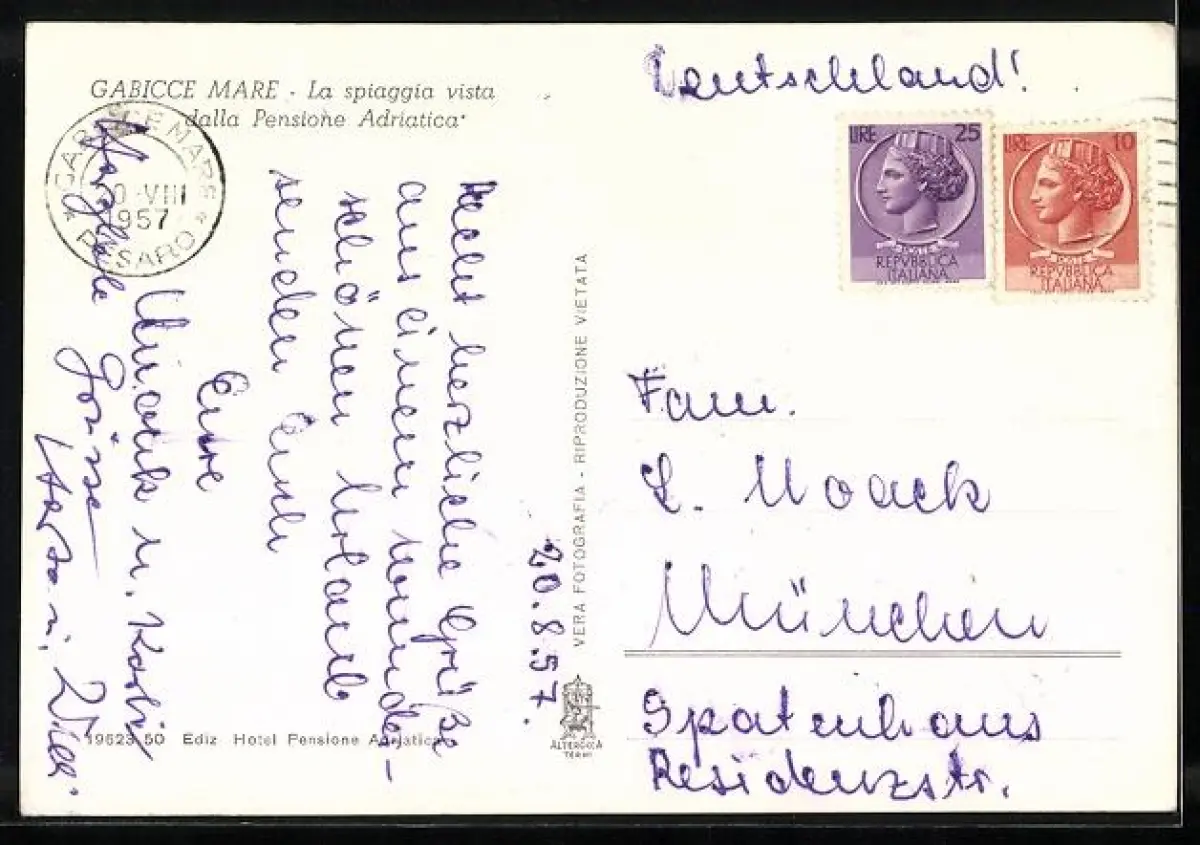 GABICCE MARE - La spiaggia vista
dalla Pensione Adriatica
GABICCE MARE
VIII
1957
* PESARO *
20.8.57.
Recht herzliche Grüße
aus einem wunder-
schönen Urlaub
senden Euch
Eure
u.
VERA FOTOGRAFIA - RIPRODUZIONE VIETATA
ALTEROCCA
TERNI
19623 50 Ediz Hotel Pensione Adriatica
Deutschland!
LIRE 25
POSTE
REPVBBLICA
ITALIANA
LIRE 10
POSTE
REPVBBLICA
ITALIANA
Fam.
L. Noack
München
Spatenhaus
Residenzstr.